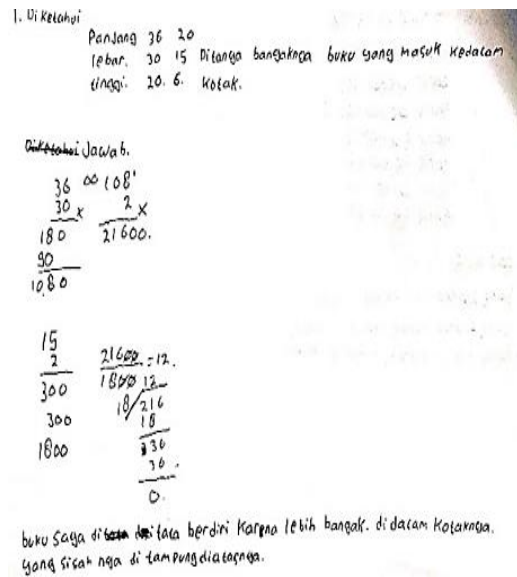 1. Diketahui
Panjang 36 20
lebar. 30 15 Ditanya bangaknga buku yang masuk kedalam
tinggi. 20. 6. kotak.
Jawab.
36 108
30 x 2 x
180 21600.
90
1080
15
2 21600 = 12.
300 1800 12
300 18/216
1800 18
36
36
0.
buku saya di tata berdiri karena lebih bangak. didalam kotaknya.
yang sisah nya di tampung diatasnya.